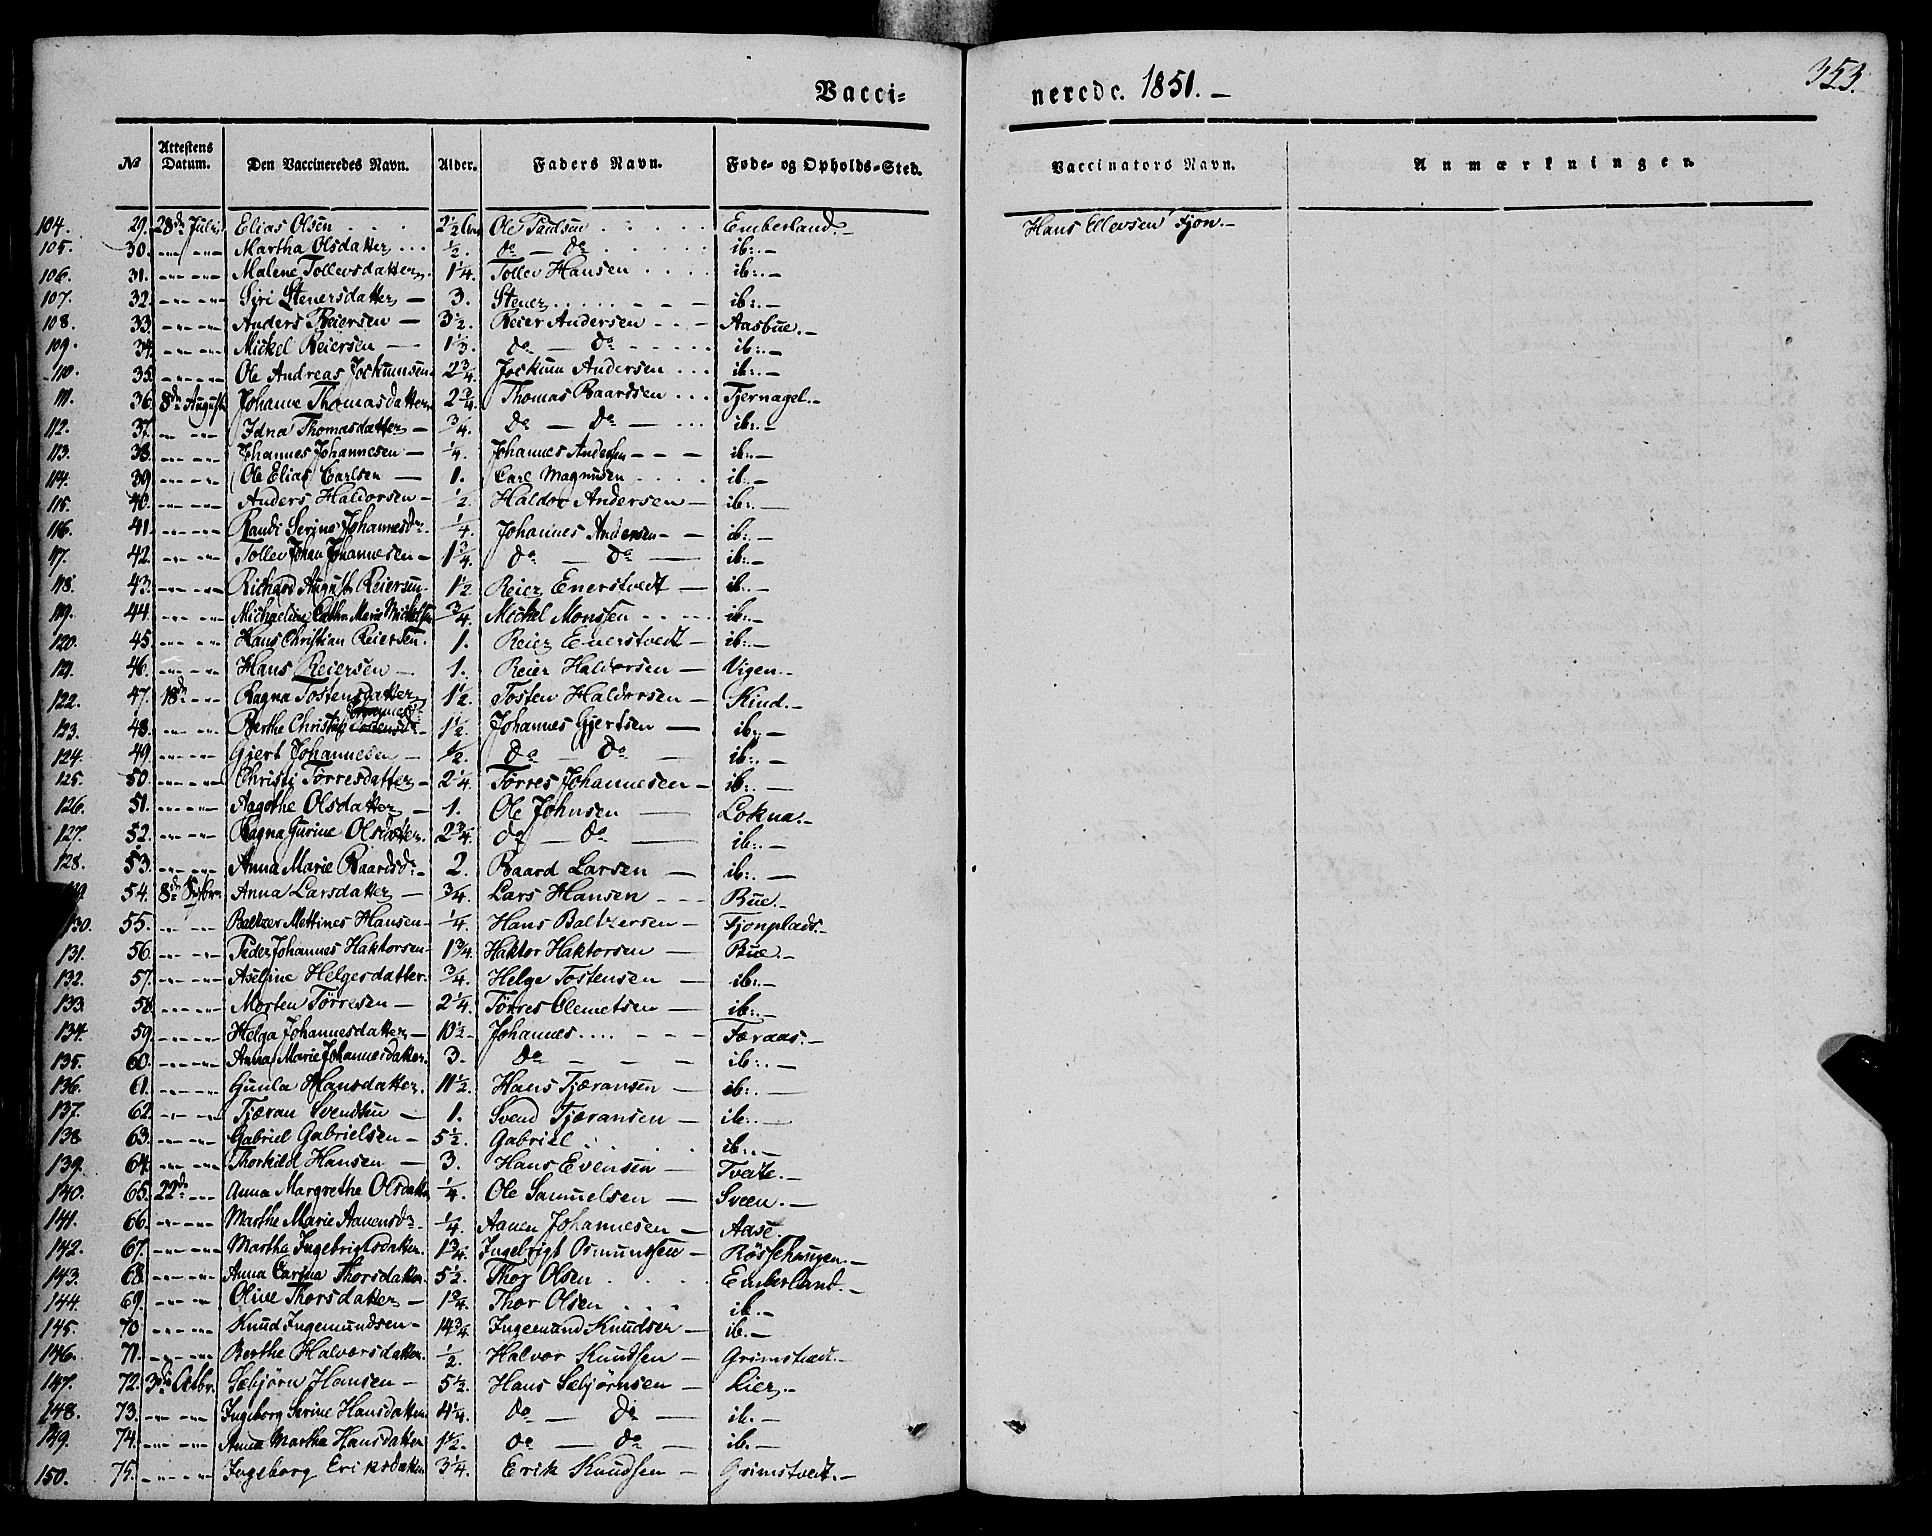 353.
Vacci- nerede. 1851. -
No Attestens Datum. Den Vaccineredes Navn. Alder. Faders Navn. Føde- og Opholds-Sted. Vaccinators Navn. Anmærkninger.
104. 29. 28de Juli Elias Olsen . . . 2½ Ole Paulsen . . . . . Emberland. - Hans Ellevsen Fjon. -
105. 30. Martha Olsdatter . . . ½. do - do . . . . . ib:. -
106. 31. Malene Tollevsdatter. 1¼. Tollev Hansen . . . . ib:. -
107. 32. Siri Stenersdatter - 3. Stener . . . . . - - - ib:. -
108. 33. Anders Reiersen - 3½. Reier Andersen - - - Aasbue. -
109. 34. Mickel Reiersen - 1⅓. do - do - - - - - ib:. -
110. 35. Ole Andreas Jockumsen. 2¾. Jockum Andersen . . . ib:. -
111. 36. 8de August Johanne Thomasdatter. 2¾. Thomas Baardsen . . . Tjernagel. -
112. 37. Idna Thomasdatter - ¾. do - do - . . . ib:. -
113. 38. Johannes Johannesen - ¼. Johannes Andersen - - - ib:. -
114. 39. Ole Elias Carlsen - 1. Carl Magnusen . . . . ib:. -
115. 40. Anders Haldorsen - ½. Haldor Andersen - ib:. -
116. 41. Randi Serine Johannesdr. ¼. Johannes Andersen - - ib:. -
117. 42. Tollev Johan Johannesen - 1¾. do - do - ib:. -
118. 43. Richard August Reiersen. 1½ Reier Enerstvedt - ib:. -
119. 44. Michaeline Cathr. Marie ¾. Mickel Monssen . . . . ib:. -
120. 45. Hans Christian Reiersen. 1. Reier Enerstvedt - ib:. -
121. 46. Hans Reiersen - 1. Reier Haldorsen - Vigen. -
122. 47. 18de Ragna Tostensdatter 1½. Tosten Haldorsen - Kind. -
123. 48. Berthe Christine 1½. Johannes Gjertsen - ib:. -
124. 49. Gjert Johannesen - ½. do - do - ib:. -
125. 50. Christi Tørresdatter - 2¼. Tørres Johannesen - ib:. -
126. 51. Aagothe Olsdatter - 1. Ole Johnsen - Lokna. -
127. 52. Ragna Gurine Olsdatter. 2¾. do - do - ib:. -
128. 53. Anna Marie Baardsdr. - 2. Baard Larsen - ib:. -
129. 54. 8de Sptbr. Anna Larsdatter - ¾. Lars Hansen - - - Bue. -
130. 55. Baltzer Mettines Hansen - ¼. Hans Baltzersen - Fjonplads. -
131. 56. Peder Johannes Haktorsen - 1¾. Haktor Haktorsen - Bue. -
132. 57. Aseline Helgesdatter. ¾. Helge Tostensen - ib:. -
133. 58. Morten Tørresen - 2¼. Tørres Clemetsen - ib:. -
134. 59. Helga Johannesdatter - 10½. Johannes . . . . - - - Færaas. -
135. 60. Anna Marie Johannesdatter. 3. do - - - ib:. -
136. 61. Gunla Hansdatter. 11½. Hans Tjæransen - ib:. -
137. 62. Tjæran Svendsen - 1. Svend Tjæransen - ib:. -
138 63. Gabriel Gabrielsen - 5½. Gabriel . . . ib:. -
139. 64. Thorkild Hansen - 3. Hans Evensen - Tveite. -
140. 65. 22de Anna Margrethe Olsdatter ¼. Ole Samuelsen - Sveen. -
141. 66. Marthe Marie Aanensdr. ¼. Aanen Johannesen - Aase. -
142. 67. Martha Ingebrigtsdatter. 1¾. Ingebrigt Osmundsen - Røssehaugen. -
143. 68. Anna Carina Thorsdatter. 5½. Thor Olsen . . . . Emberland. -
144. 69. Olive Thorsdatter - 1¾. Thor Olsen . . . ib. -
145. 70 Knud Ingemundsen - 14¾. Ingemund Knudsen - ib. -
146. 71. Berthe Halvorsdatter. ½. Halvor Knudsen - Grimstvedt. -
147. 72. 3de Octbr. Sæbjørn Hansen - 5½. Hans Sæbjørnsen - Lier. -
148. 73. Ingeborg Serine Hansdatter. 4¼. do - do - ib. -
149. 74. Anna Martha Hansdatter 1½. do - do - ib. -
150. 75. Ingeborg Eriksdatter 3¼. Erik Knudsen - Grimstvedt. -